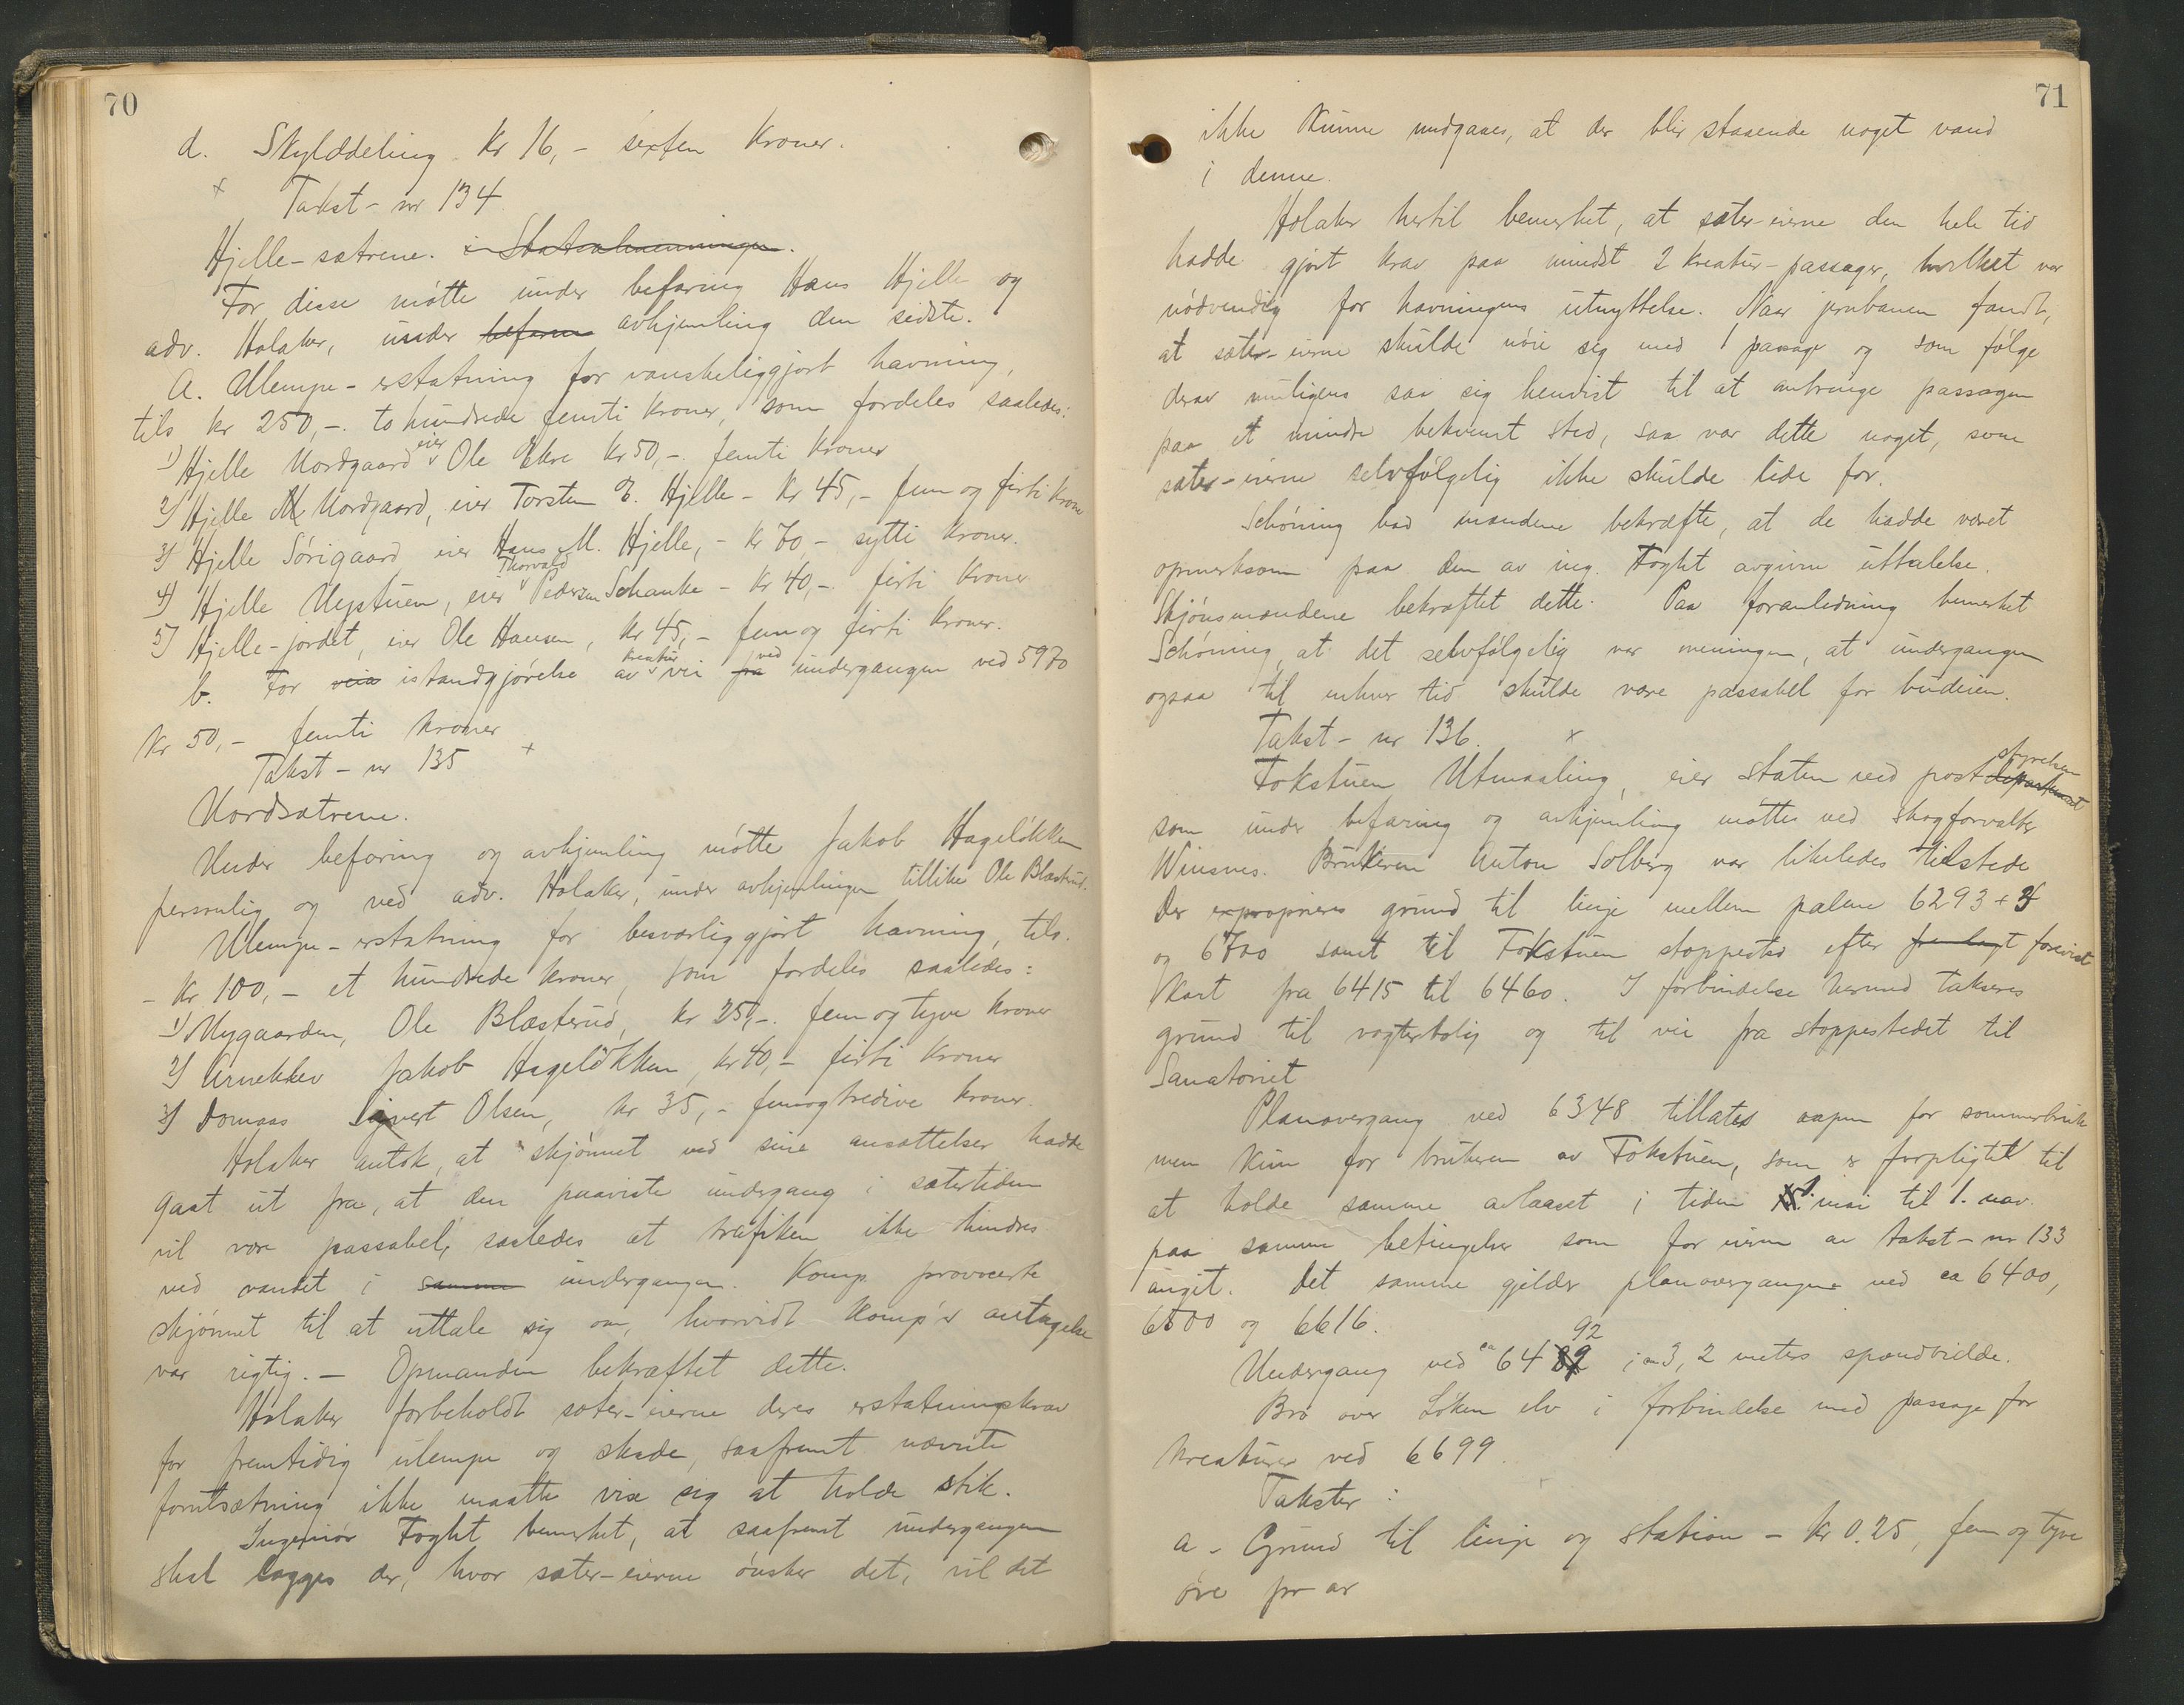 70
d. Skylddeling kr 16,- sexten kroner.
x Takst-nr 134
Hjelle-sætrene. i Statsalmenningen.
For disse møtte under befaring Hans Hjelle og
adv. Holaker, under befarin avhjemling den sidste.
a. Ulempe-erstatning for vanskeliggjort havning,
tils kr 250,-. to hundrede femti kroner, som fordeles saaledes:
1) Hjelle Nordgaard eier Ole Ekre kr 50,-. femti kroner
2) Hjelle N Nordgaard, eier Torsten E. Hjelle - kr 45,- fem og firti kroner
3) Hjelle Sørigaard eier Hans M. Hjelle, - kr 70,- sytti kroner.
4) Hjelle Nystuen, eier Thorvald Pedersen Schanke - kr 40,-. firti kroner
5) Hjelle-jordet, eier Ole Hansen, kr 45,- fem og firti kroner.
b. For veia istandgjørelse av kreatur vei pa ved undergangen ved 5970
kr 50,- femti kroner
Takst-nr 135 x
Nordsætrene.
Under befaring og avhjemling møtte Jakob Hageløkken
personlig og ved adv. Holaker, under avhjemlingen tillike Ole Blæsterud.
Ulempe-erstatning for besværliggjort havning, tils.
- kr 100,- et hundrede kroner, som fordeles saaledes:
1) Nygaarden, Ole Blæsterud, kr 25,-. fem og tyve kroner
2) Jakob Hageløkken, kr 40,- firti kroner
3) Domaas Sivert Olsen, kr 35,- femogtredive kroner.
Holaker antok, at skjønnet ved sine ansættelser hadde
gaat ut fra, at den paaviste undergang i sætertiden
vil være passabel, saaledes at trafiken ikke hindres
ved vandet i samme undergangen. Komp. provocerte
skjønnet til at uttale sig om, hvorvidt komp's antagelse
var rigtig. - Opmanden bekræftet dette.
Holaker forbeholdt sæter-eierne deres erstatningskrav
for fremtidig ulempe og skade, saafremt nævnte
forutsætning ikke maatte vise sig at holde stik.
Ingeniør Foght bemerket, at saafremt undergangen
skal lægges der, hvor sæter-eierne ønsker det, vil det
71
ikke kunne undgaaes, at der blir staaende noget vand
i denne.
Holaker hertil bemerket, at sæter-eierne den hele tid
hadde gjort krav paa mindst 2 kreatur-passager, hvilket var
nødvendig for havningens utnyttelse. Naar jernbanen fandt,
at sæter-eierne skulde nøie sig med 1 passage og som følge
derav muligens saa sig henvist til at anbringe passagen
paa et mindre bekvemt sted, saa var dette noget, som
sæter-eierne selvfølgelig ikke skulde lide for.
Schøning bad mændene bekræfte, at de hadde været
opmerksom paa den av ing. Foght avgivne uttalelse.
Skjønsmændene bekræftet dette. Paa foranledning bemerket
Schøning, at det selvfølgelig var meningen, at undergangen
ogsaa til enhver tid skulde være passabel for budeien.
Takst-nr 136. x
Fokstuen Utmaaling, eier staten ved postdepartement styrelsen
som under befaring og avhjemling møttes ved skogforvalter
Winsnes. Brukeren Anton Solberg var likeledes tilstede
Der exproprieres grund til linje mellem pælene 6293 +
og 6700 samt til Fokstuen stoppested efter fremlagt forevist
kart fra 6415 til 6460. I forbindelse hermed takseres
grund til vogterbolig og til vei fra stoppestedet til
Sanatoriet
Planovergang ved 6348 tillates aapen for sommerbruk
men kun for brukeren av Fokstuen, som er forpligtet til
at holde samme avlaaset i tiden 1. mai til 1. nov.
paa samme betingelser som for eierne av takst-nr 133
angit. Det samme gjelder planovergangene ved ca 6400,
6500 og 6616.
Undergang ved ca 6492 i ca 3,2 meters spændvidde.
Bro over Løken elv i forbindelse med passage for
kreaturer ved 6699.
Takster:
a - Grund til linje og station - kr 0.25, fem og tyve
øre pr ar